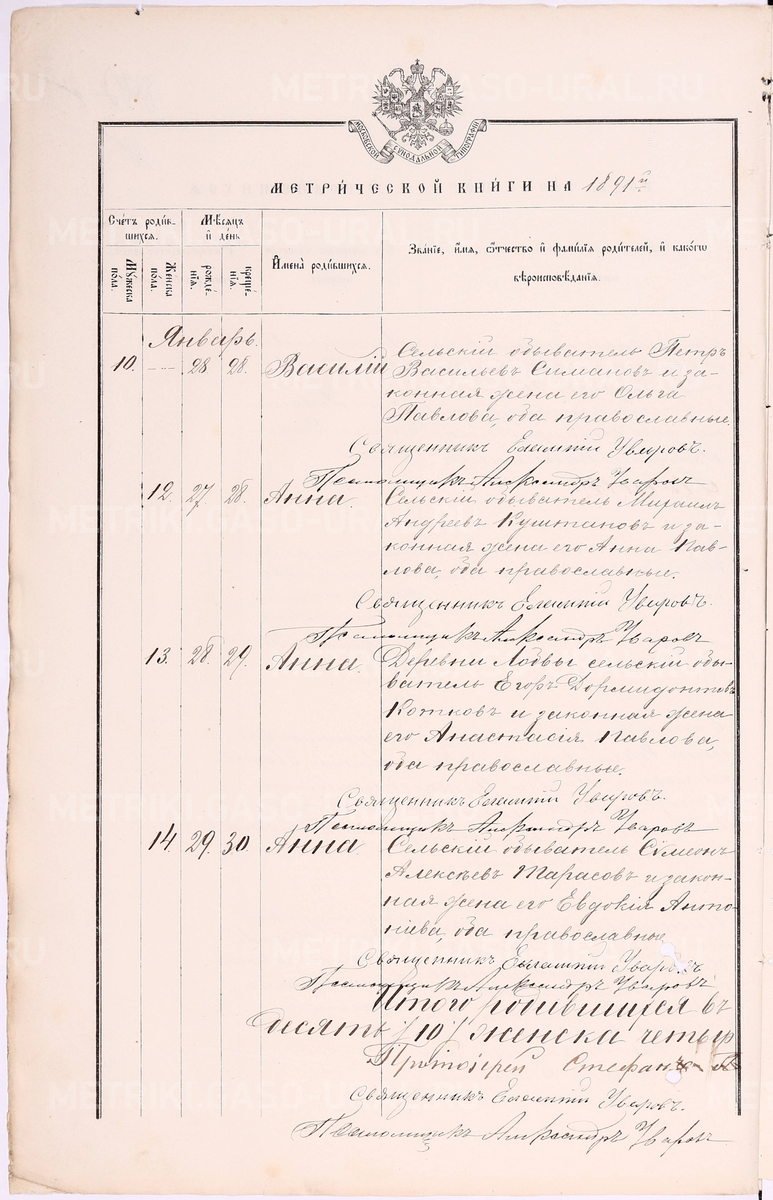 МОСКОВСКОЙ СУНОДАЛЬНОЙ ТИПОГРАФІИ
МЕТРИ́ЧЕСКОЙ КНИ́ГИ НА 1891й
Сче́тъ роди́в-
шихся.
Мѣ́сяцъ
и҆ де́нь
И҆мена̀ роди́вшихся.
Зва́нїе, и҆́мя, ѻ҆́тчество и҆ фами́лїя роди́телей, и҆ како́гѡ
вѣроисповѣ́данїя.
Мꙋ́жеска по́ла.
Же́нска по́ла.
рожде́нїя.
креще́нїя.
Январь.
10. — 28 28. Василій
Сельскій обыватель Петръ
Васильевъ Симановъ и за-
конная жена его Ольга
Павлова, оба православные.
Священникъ Евгеній Уваровъ.
Псаломщикъ Александръ Уваровъ
12. 27 28. Анна.
Сельскій обыватель Михаилъ
Андреевъ Куштановъ и за-
конная жена его Анна Пав-
лова, оба православные.
Священникъ Уваровъ.
Псаломщикъ Александръ Уваровъ
13. 28 29. Анна.
Деревни Лобвы сельскій обы-
ватель Егоръ Дормидонтовъ
Котковъ и законная жена
его Анастасія Павлова,
оба православные.
Священникъ Уваровъ.
Псаломщикъ Александръ Уваровъ
14. 29. 30 Анна
Сельскій обыватель Сѵмеонъ
Алексѣевъ Тарасовъ и закон-
ная жена его Евдокія Анто-
ніева, оба православные
Священникъ Уваровъ
Псаломщикъ Александръ Уваровъ
Итого родившихся въ
десять /10/ женска четыр
Протоіерей Стефанъ
Священникъ Уваровъ.
Псаломщикъ Александръ Уваровъ
METRIKI.GASO-URAL.RU